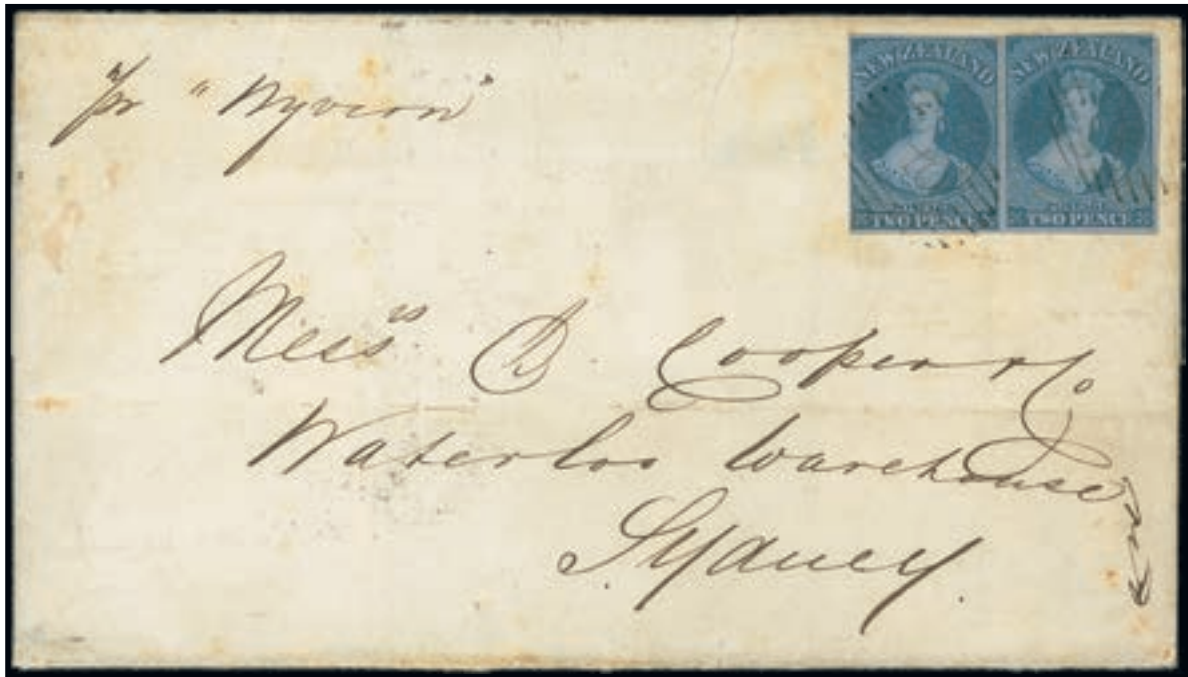 pr "Wyvern"
NEW ZEALAND
POSTAGE
TWO PENCE
NEW ZEALAND
POSTAGE
TWO PENCE
Messrs D Cooper & Co
Waterloo Warehouse
Sydney.